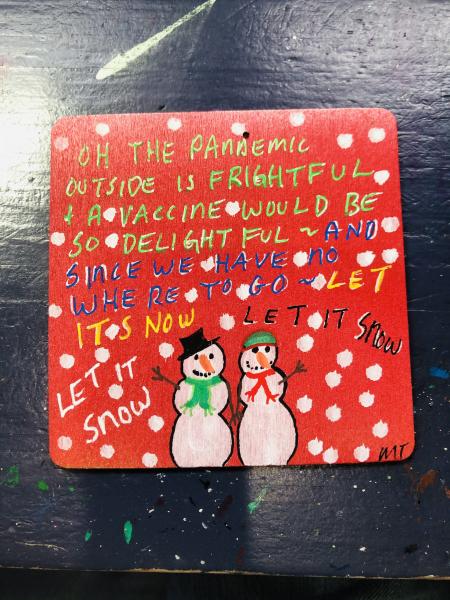 OH THE PANDEMIC
OUTSIDE IS FRIGHTFUL
+ A VACCINE WOULD BE
SO DELIGHTFUL ~ AND
SINCE WE HAVE NO
WHERE TO GO ~ LET
IT'S NOW LET IT SNOW
LET IT
SNOW
MT